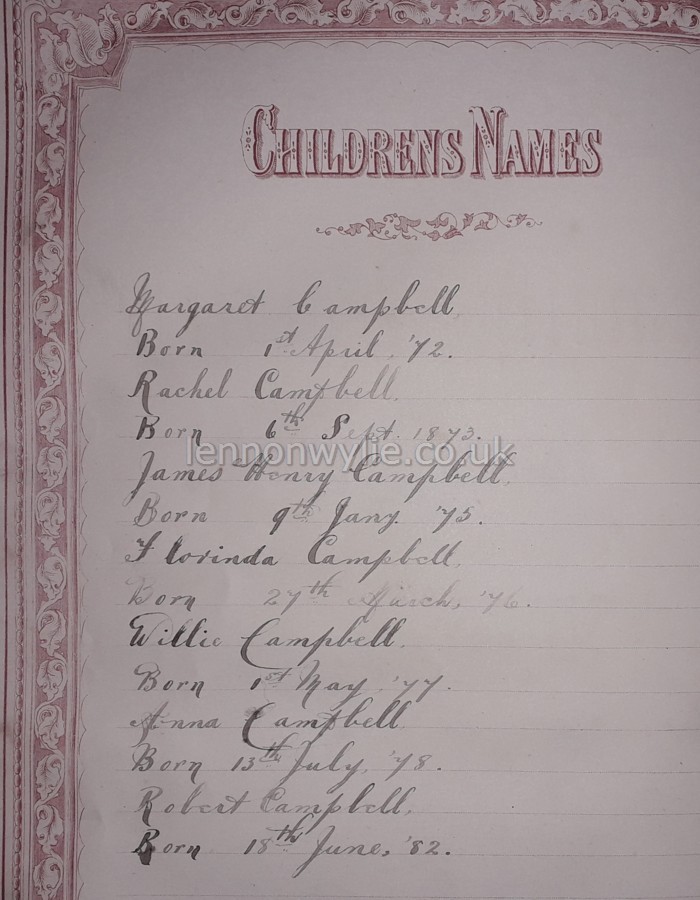 CHILDRENS NAMES
Margaret Campbell.
Born 1st April, '72.
Rachel Campbell.
Born 6th Sept. 1873.
lennonwylie.co.uk
James Henry Campbell.
Born 9th Jany. '75.
Florinda Campbell.
Born 27th March, '76.
Willie Campbell.
Born 1st May, '77.
Anna Campbell
Born 13th July, '78.
Robert Campbell.
Born 18th June, '82.